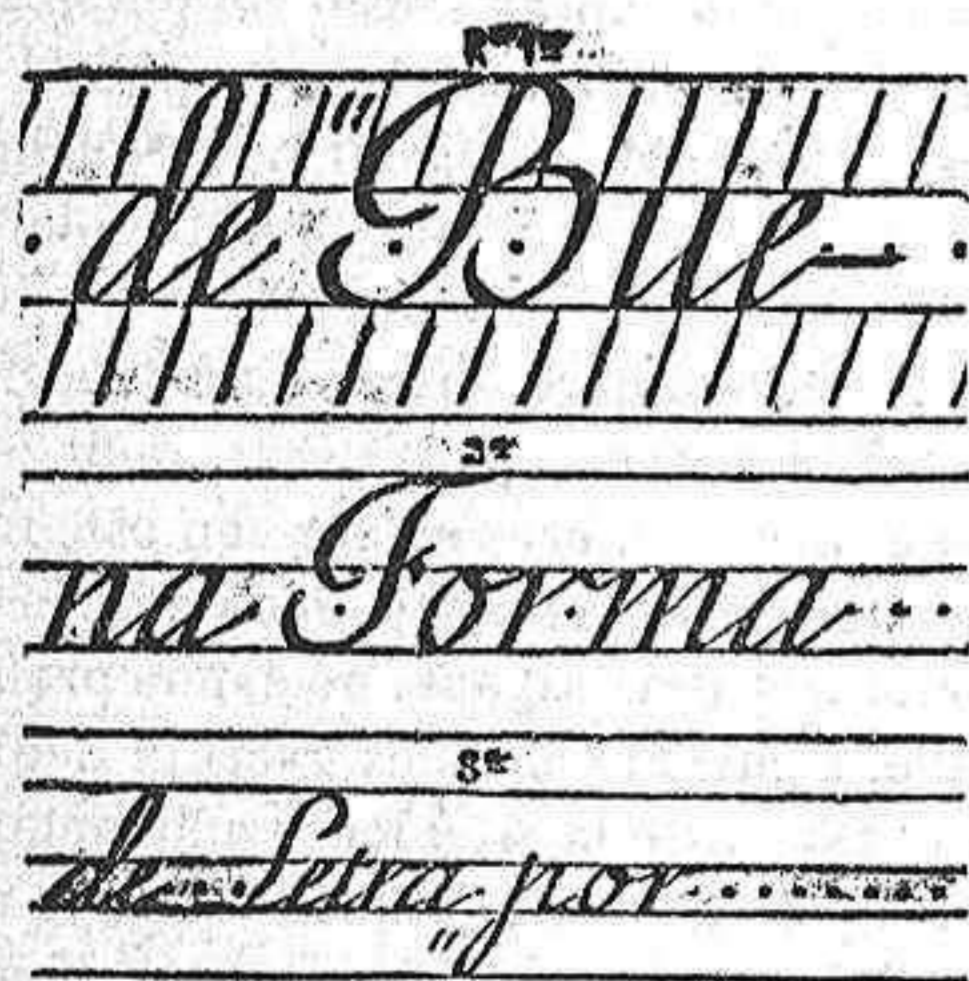 R.ª 1ª
de Bue-
2ª
na Forma
3ª
de Letra por